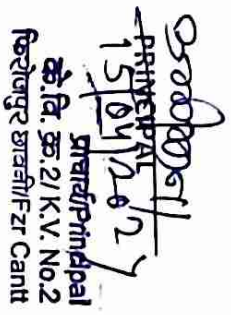 PRINCIPAL
प्राचार्य/Principal
के.वि. क्र.2/K.V. No.2
फिरोजपुर छावनी/Fzr Cantt